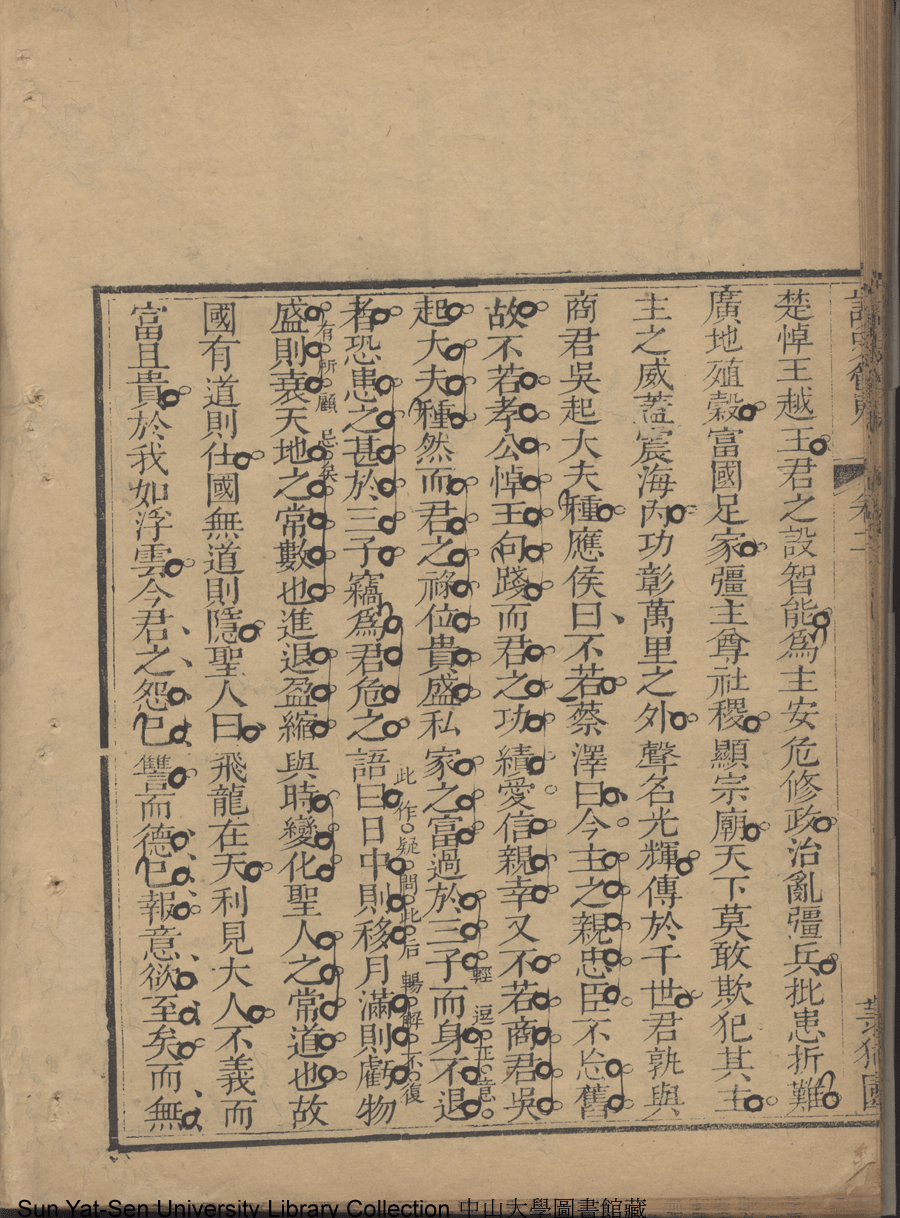 楚悼王越王君之設智能爲主安危修政治亂彊兵批患折難
廣地殖穀富國足家彊主尊社稷顯宗廟天下莫敢欺犯其主
主之威蓋震海內功彰萬里之外聲名光輝傳於千世君孰與
商君吳起大夫種應侯曰不若蔡澤曰今主之親忠臣不忘舊
故不若孝公悼王句踐而君之功績愛信親幸又不若商君吳
起大夫種然而君之祿位貴盛私家之富過於三子而身不退
輕逗正意
者恐患之甚於三子竊爲君危之語曰日中則移月滿則虧物
此作疑問此后暢解不復
有所顧忌矣
盛則衰天地之常數也進退盈縮與時變化聖人之常道也故
國有道則仕國無道則隱聖人曰飛龍在天利見大人不義而
富且貴於我如浮雲今君之怨已讐而德已報意欲至矣而無
Sun Yat-Sen University Library Collection 中山大學圖書館藏